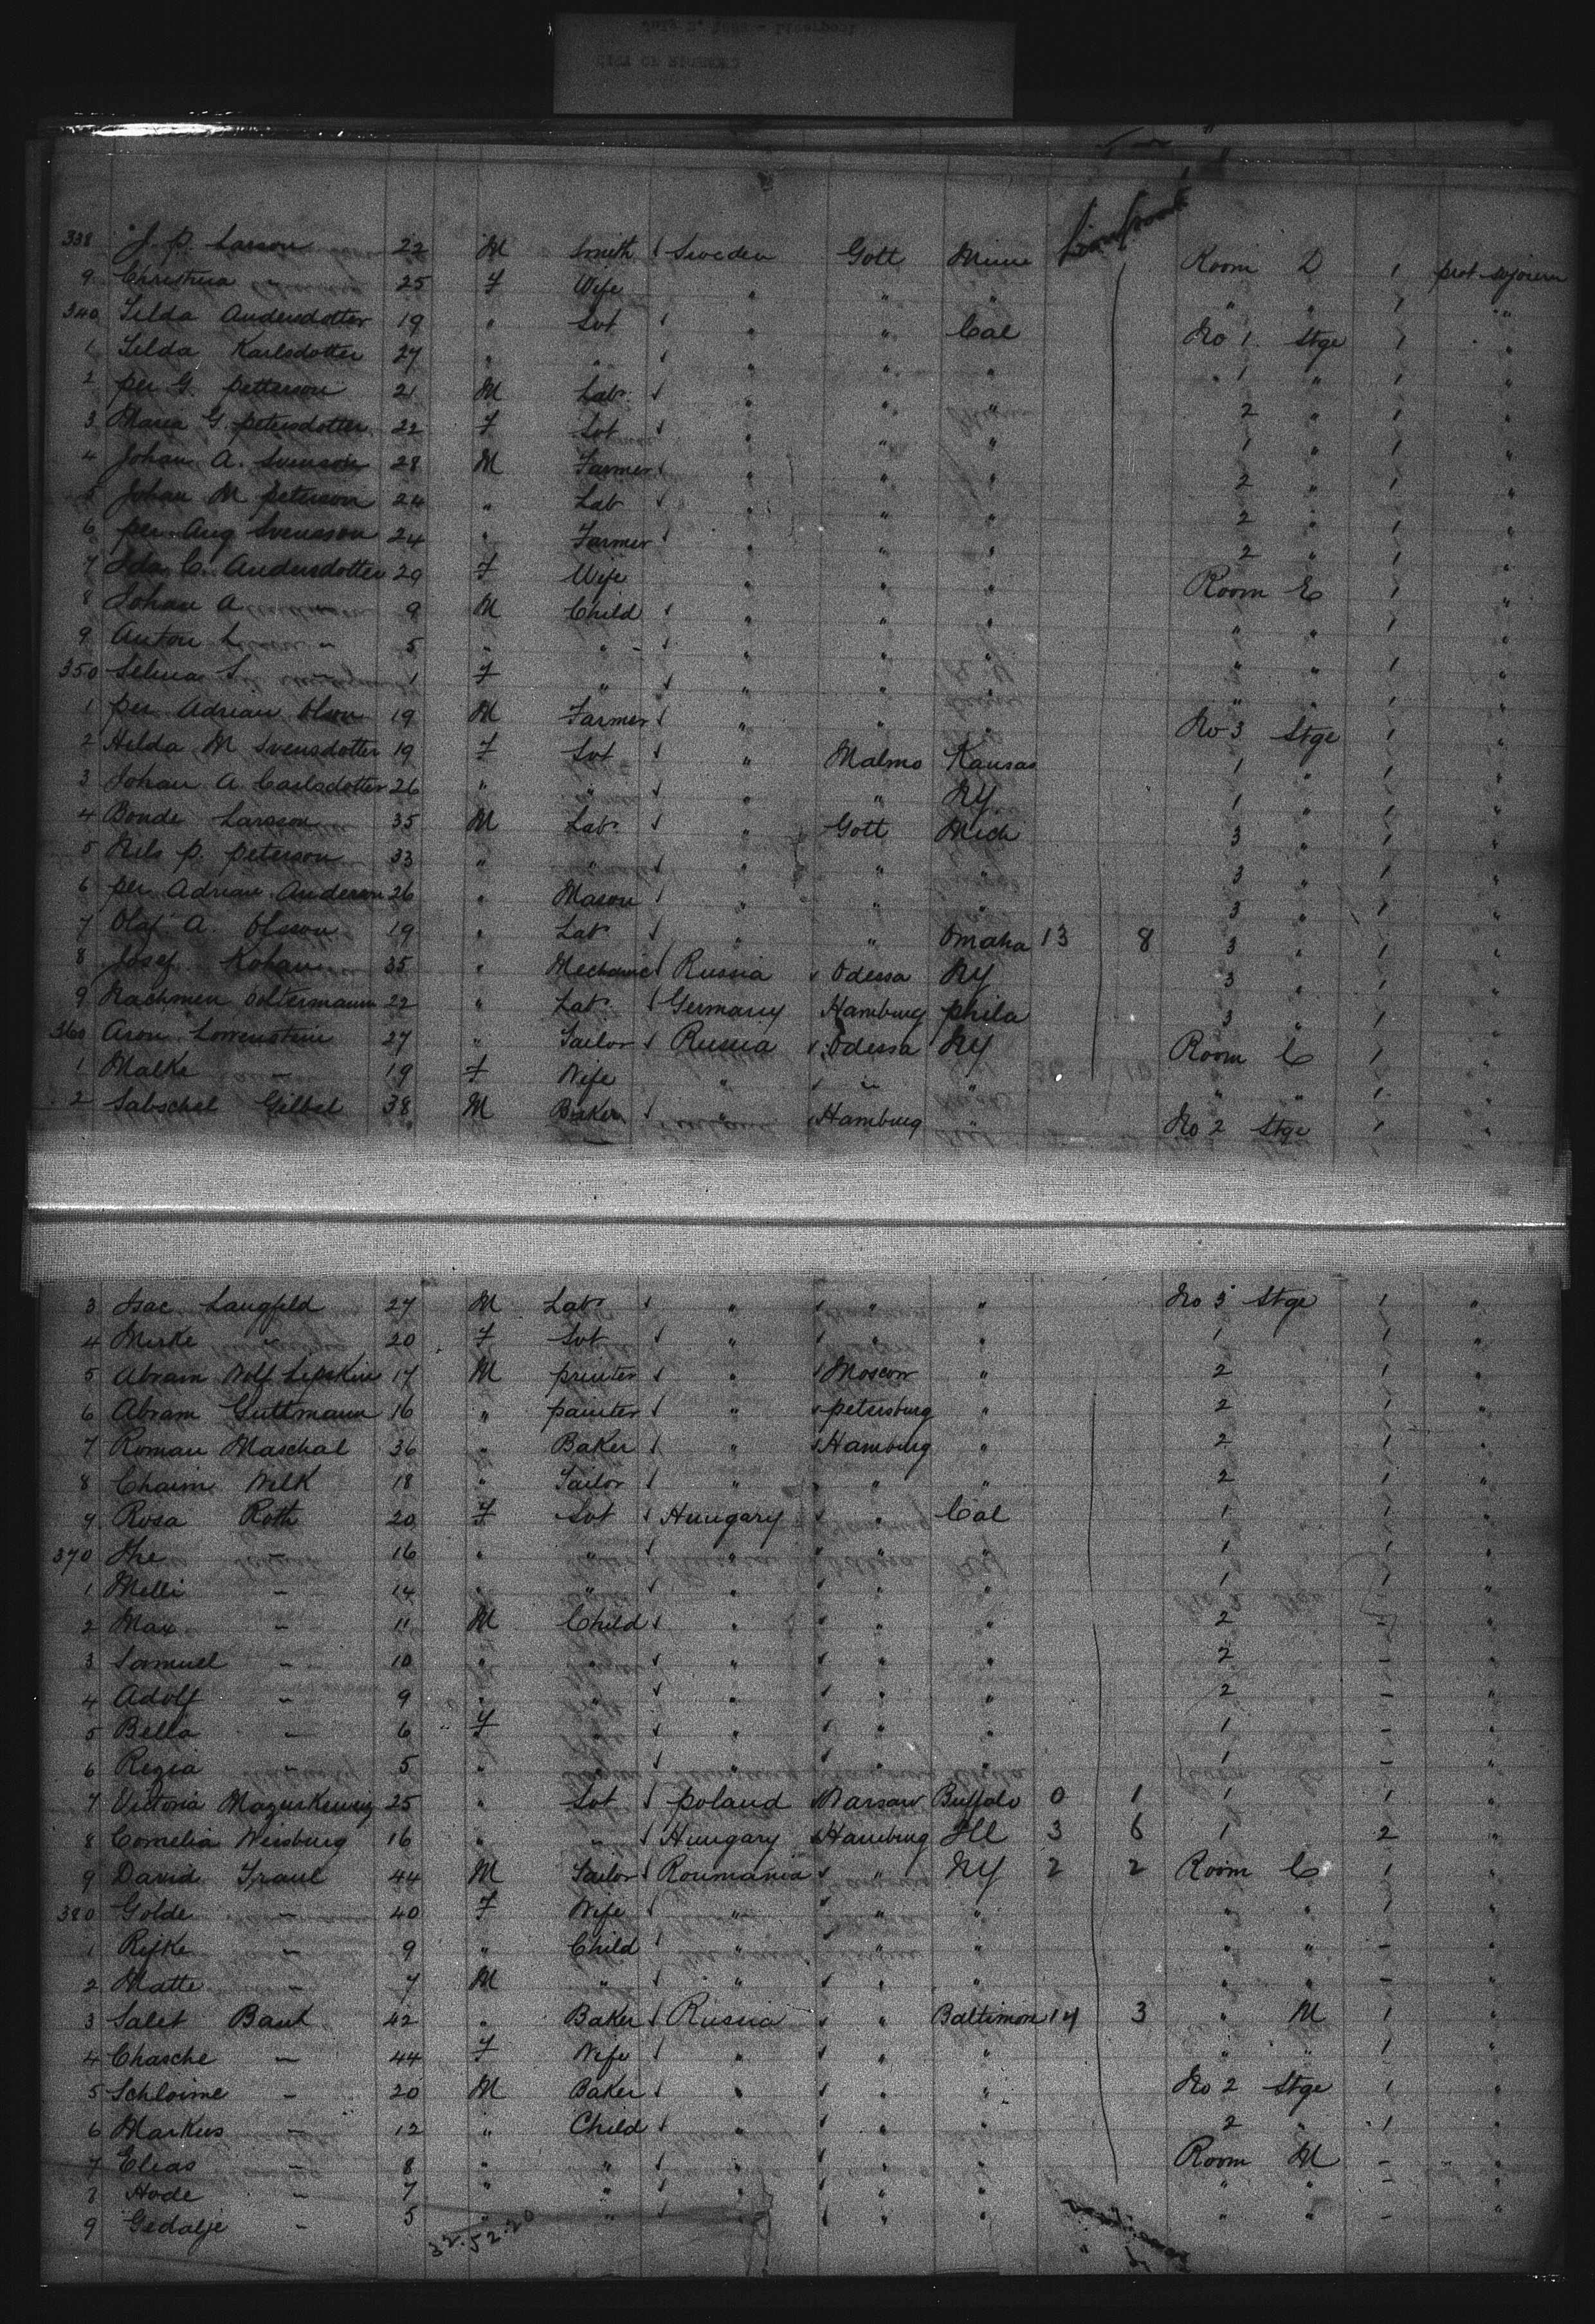 338 J. P. Larson 22 M Smith Sweden Gott Minn Room D 1 prot sojourn
9 Christina " 25 F Wife " " " " " 1 "
340 Tilda Andersdotter 19 " Svt " " Cal No 1 Stge 1 "
1 Tilda Karlsdotter 27 " " " " " 1 " 1 "
2 per G. petterson 21 M Lab " " " 2 " 1 "
3 Maria G. petersdotter 22 F Svt " " " 1 " 1 "
4 Johan A. Svenson 28 M Farmer " " " 2 " 1 "
5 Johan M peterson 24 " Lab " " " 2 " 1 "
6 per Aug Svensson 24 " Farmer " " " 2 " 1 "
7 Ida C. Andersdotter 29 F Wife " " " Room E 1 "
8 Johan A 9 M Child " " " " " 1 "
9 Anton L " 5 " " " " " " " 1 "
350 Selma S " 1 F " " " " " " 1 "
1 per Adrian Olson 19 M Farmer " " " No 3 Stge 1 "
2 Hilda M Svensdotter 19 F Svt " Malmo Kansas 1 " 1 "
3 Johan A. Carlsdotter 26 " " " " NY 1 " 1 "
4 Bonde Larsson 35 M Lab " Gott Mich 3 " 1 "
5 Nils P. peterson 33 " " " " " 3 " 1 "
6 per Adrian Anderson 26 " Mason " " " 3 " 1 "
7 Olaf A. Olsson 19 " Lab " " Omaha 13 8 3 " 1 "
8 Josef Kohan 35 " Mechanic Russia Odessa NY 3 " 1 "
9 Nachmen 22 " Lab Germany Hamburg phila 3 " 1 "
360 Aron Lorrenstein 27 " Tailor Russia Odessa NY Room C 1 "
1 Malke - 19 F Wife " " " " " 1 "
2 Sabschel Gilbel 38 M Baker " Hamburg " No 2 Stge 1 "
3 Isac Langfeld 27 M Lab " " " No 3 Stge 1 "
4 Mirke " 20 F Svt " " " 1 1 "
5 Abram Wolf Lipskin 17 M printer " Moscow " 2 1 "
6 Abram Guttmann 16 " painter " petersburg " 2 1 "
7 Roman Maschal 36 " Baker " Hamburg " 2 1 "
8 Chaim Wilk 18 " Tailor " " " 2 1 "
9 Rosa Roth 20 F Svt Hungary " Cal 1 1 "
370 - 16 " " " " " 1 1 "
1 Melli - 14 " " " " " 1 1 "
2 Max - 11 M Child " " " 2 - "
3 Samuel - 10 " " " " " 2 - "
4 Adolf - 9 " " " " " 2 - "
5 Bella - 6 F " " " " 1 - "
6 Regia - 5 " " " " " 1 - "
7 Victoria 25 " Svt poland Warsaw Buffalo 0 1 1 1 "
8 Cornelia Weisburg 16 " " Hungary Hamburg Ill 3 6 1 2 "
9 David Traul 44 M Tailor Roumania " NY 2 2 Room C 1 "
380 Golde - 40 F Wife " " " " " 1 "
1 Rifke - 9 " Child " " " " " - "
2 Matte - 7 M " " " " " " - "
3 Salet Bank 42 " Baker Russia " Baltimore 14 3 " M 1 "
4 Chasche - 44 F Wife " " " " " 1 "
5 Schloime - 20 M Baker " " " No 2 Stge 1 "
6 Markus - 12 " Child " " " 2 " 1 "
7 Elias - 8 " " " " " Room M - "
8 Hode - 7 " " " " " " " - "
9 Gedalje - 5 " " " " " " " - "
32.52.20